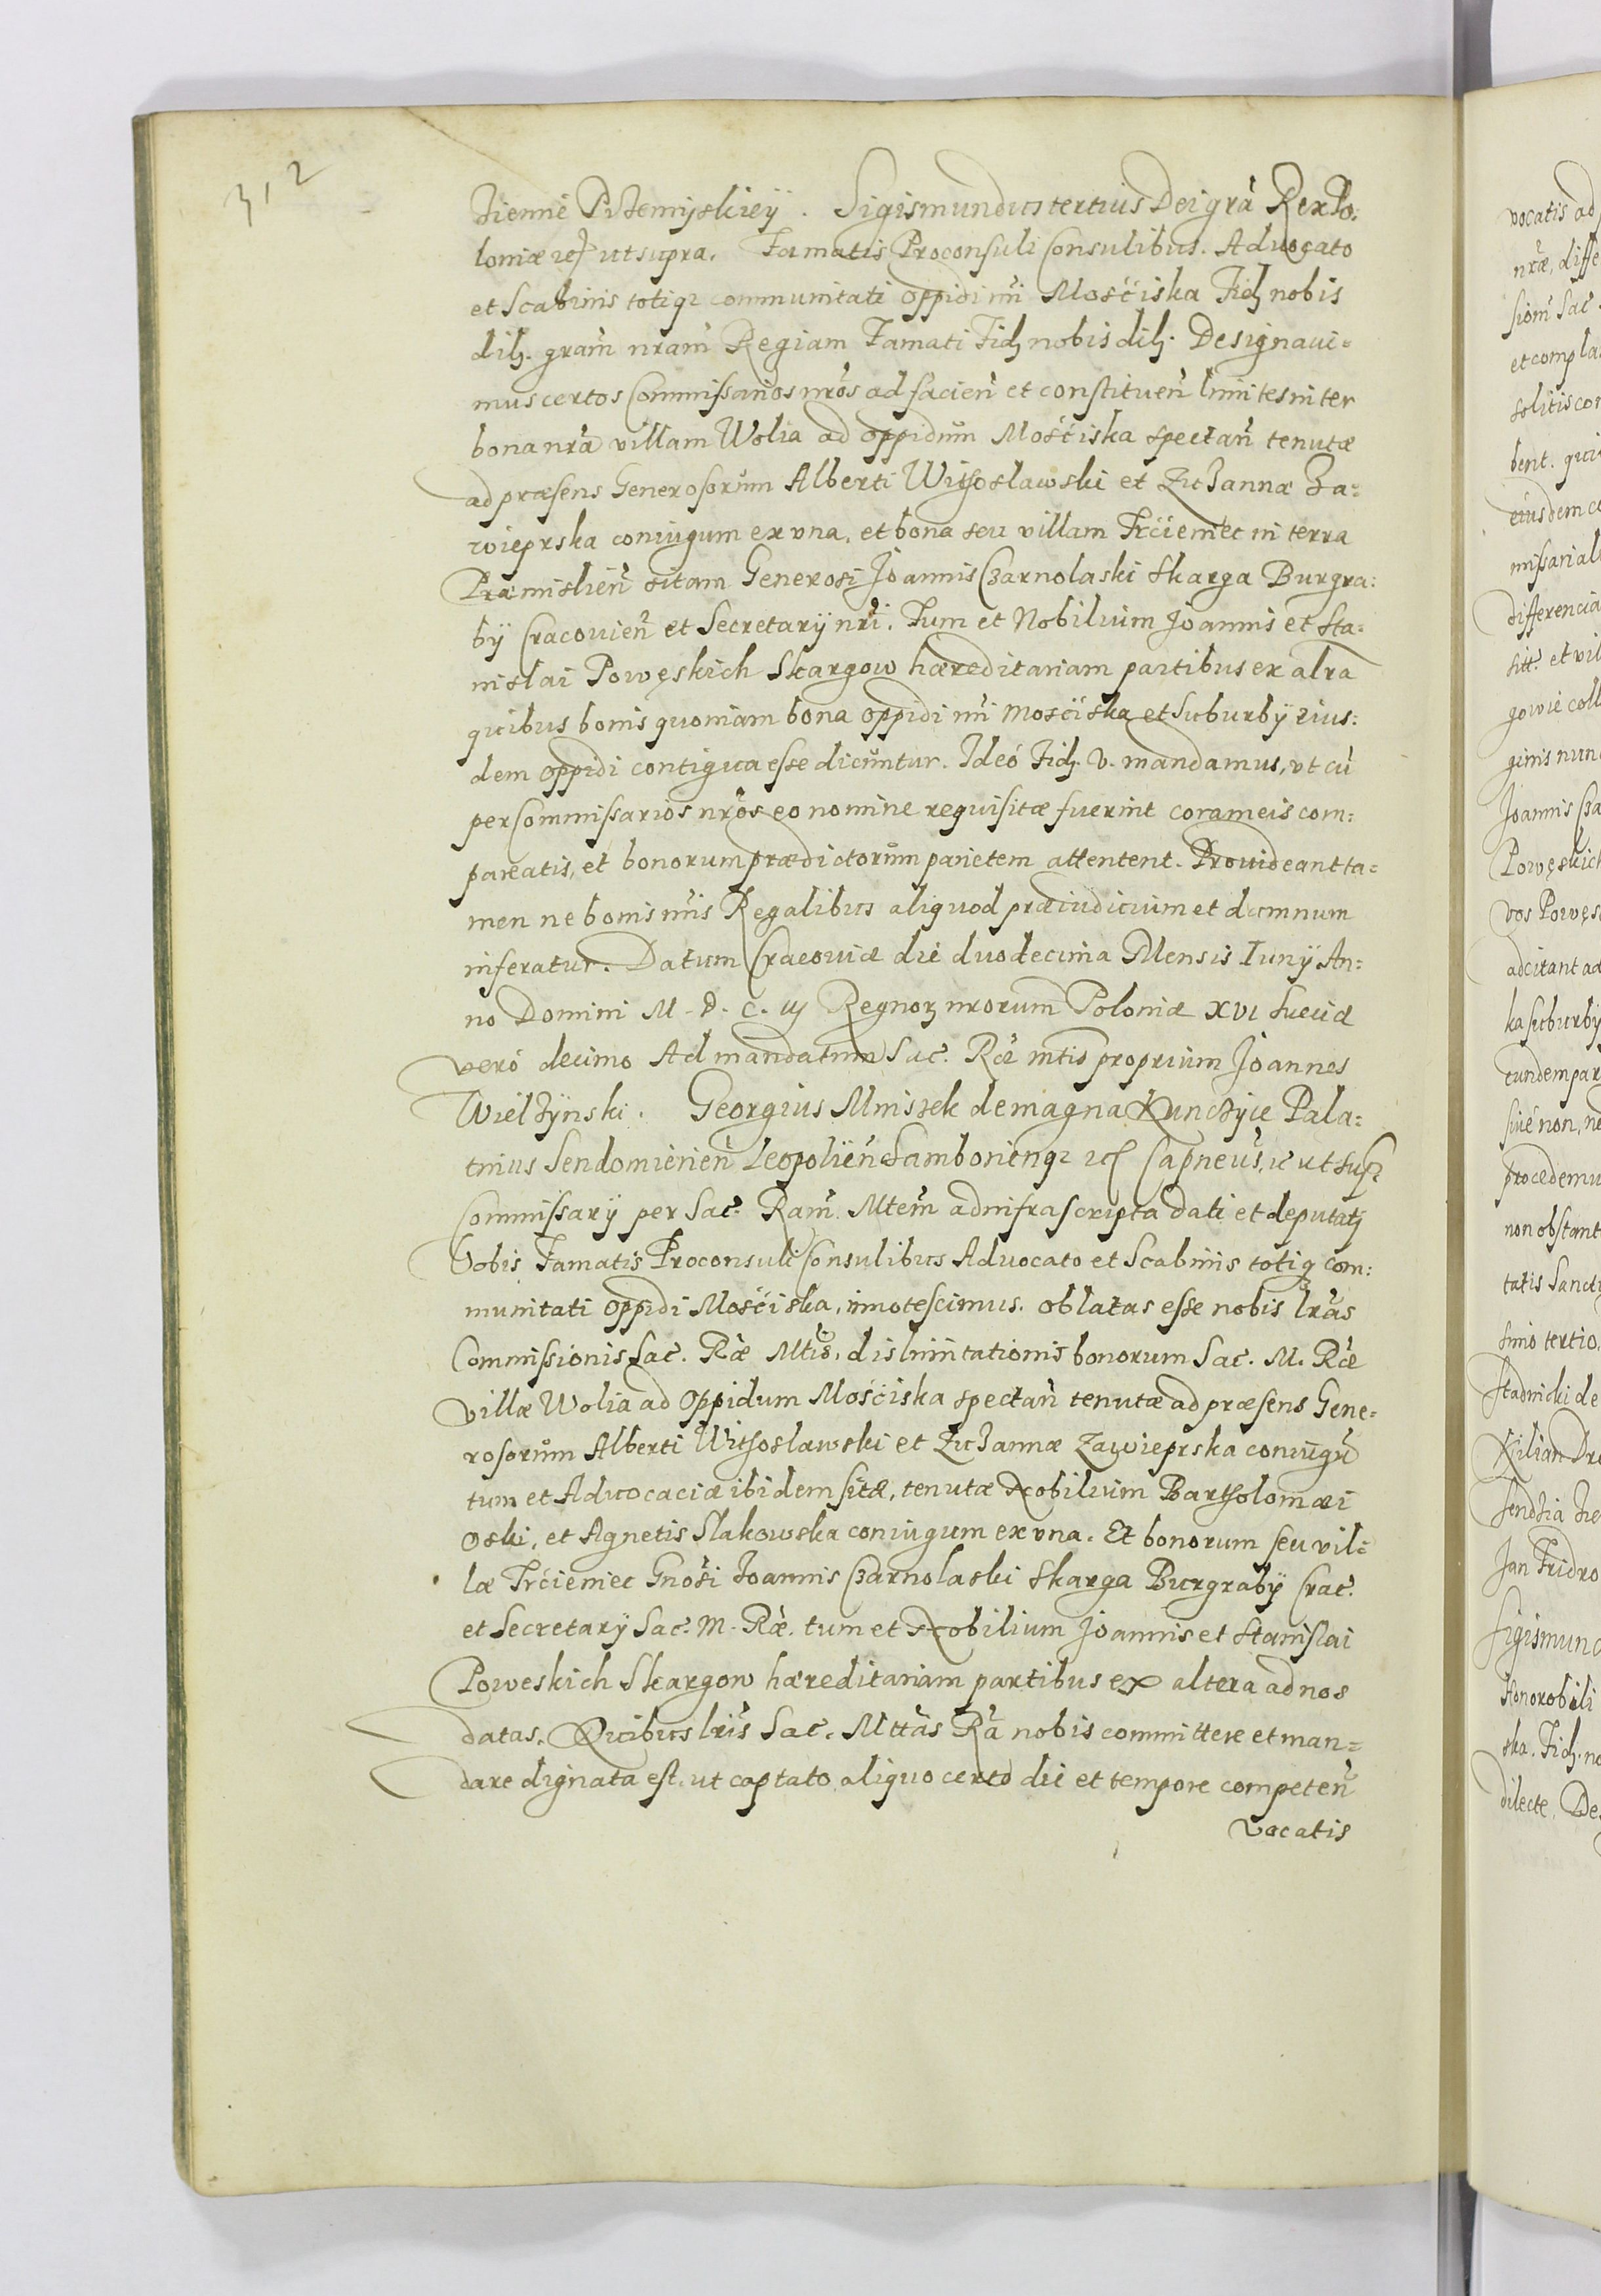 312
Ziemie Przemyskiey. Sigismundus tertius Dei gra Rex Po:
loniæ ut supra. Famatis Proconsuli Consulibus. Advocato
et Scabinis totiq; communitati oppidi nri Mosciska Fid nobis
dil. gram nram Regiam Famati Fid nobis dil. Designaui=
mus certos Commissarios nros ad facien et constituen limites inter
bona nra villam Wolia ad oppidum Mosciska spectan tenutæ
ad præsens Generosorum Alberti Withoslawski et Zuzannæ Za=
wieprska coniugum ex vna, et bona seu villam Trcieniec in terra
Præmislien sitam Generosi Joannis Czarnolaski Skarga Burgra:
bÿ Cracouien et Secretarÿ nri. Tum et Nobilium Joannis et Sta=
nislai Powęskich Skargow hæreditariam partibus ex altra
quibus bonis quoniam bona oppidi nri Mosciska et Suburbÿ eius:
dem oppidi contigua esse dicuntur. Ideo Fid. V. mandamus, vt cu
per Commissarios nros eo nomine requisitæ fuerint coram eis com:
pareatis, et bonorum prædictorum parietem attentent. Prouideant ta=
men ne bonis nris Regalibus aliquod præiudicium et damnum
inferatur. Datum Cracouiæ die duodecima Mensis Iunÿ An:
no Domini M. D. C. iij Regnor nrorum Poloniæ XVI Sueciæ
vero decimo Ad mandatum Sac. Ræ mtis proprium Joannes
Wielzynski. Georgius Mniszek de magna Kunczyce Pala=
tinus Sendomirien Leopolien Samborienq; Capneus, ut sup
Commissarÿ per Sac. Ram Mtem ad infrascripta dati et deputati
Vobis Famatis Proconsuli Consulibus Aduocato et Scabinis totiq com:
munitati oppidi Mosciska, innotescimus. oblatas esse nobis lras
Commissionis Sac. Ræ Mtis, dislimitationis bonorum Sac. M. Ræ
villæ Wolia ad oppidum Mosciska spectan tenutæ ad præsens Gene=
rosorum Alberti Withoslawski et Zuzannæ Zawieprska coniugu
tum et Aduocaciæ ibidem sitæ, tenutæ Nobilium Bartholomæi
Oski, et Agnetis Slakowska coniugum ex vna. Et bonorum seu vil=
læ Trcieniec Gnosi Joannis Czarnolaski Skarga Burgrabÿ Crac.
et Secretarÿ Sac. M. Ræ. tum et Nobilium Joannis et Stanislai
Poweskich Skargow hæreditariam partibus ex altera ad nos
datas. Quibus lris Sac. Mttas Ra nobis committere et man=
dare dignata est, ut captato aliquo certo die et tempore competen
vocatis
vocatis ad
nræ, diffe
siom Sac.
et compla
solitis con
bent. qui
eiusdem co
missariali
differencia
sitt. et vil
gowie coll
ginis nunc
Joannis Cza
Powęskich
vos Powęs
adcitant ad
ka suburbÿ
eundem par
siue non, ne
procedemu
non obstant
tatis Sancti
simo tertio.
Stadnicki de
Kilian Dro
Jan Fridro
Sigismund
Honorobili
ska. Fid. no
dilecte, De